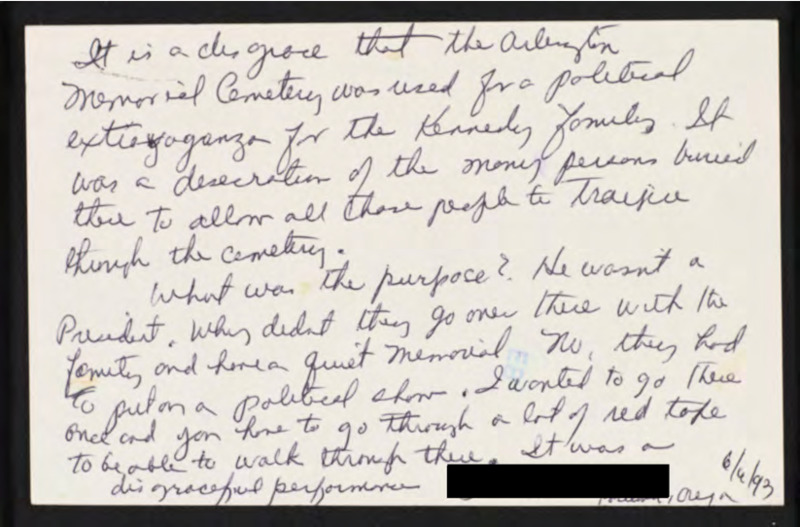 It is a disgrace that the Arlington
Memorial Cemetery was used for a political
extravaganza for the Kennedy family. It
was a desecration of the many persons buried
there to allow all those people to traipse
through the cemetery.
What was the purpose? He wasn't a
President. Why didnt they go over there with the
family and have a quiet memorial No, they had
to put on a political show. I wanted to go there
once and you have to go through a lot of red tape
to be able to walk through there. It was a
disgraceful performance
6/4/93